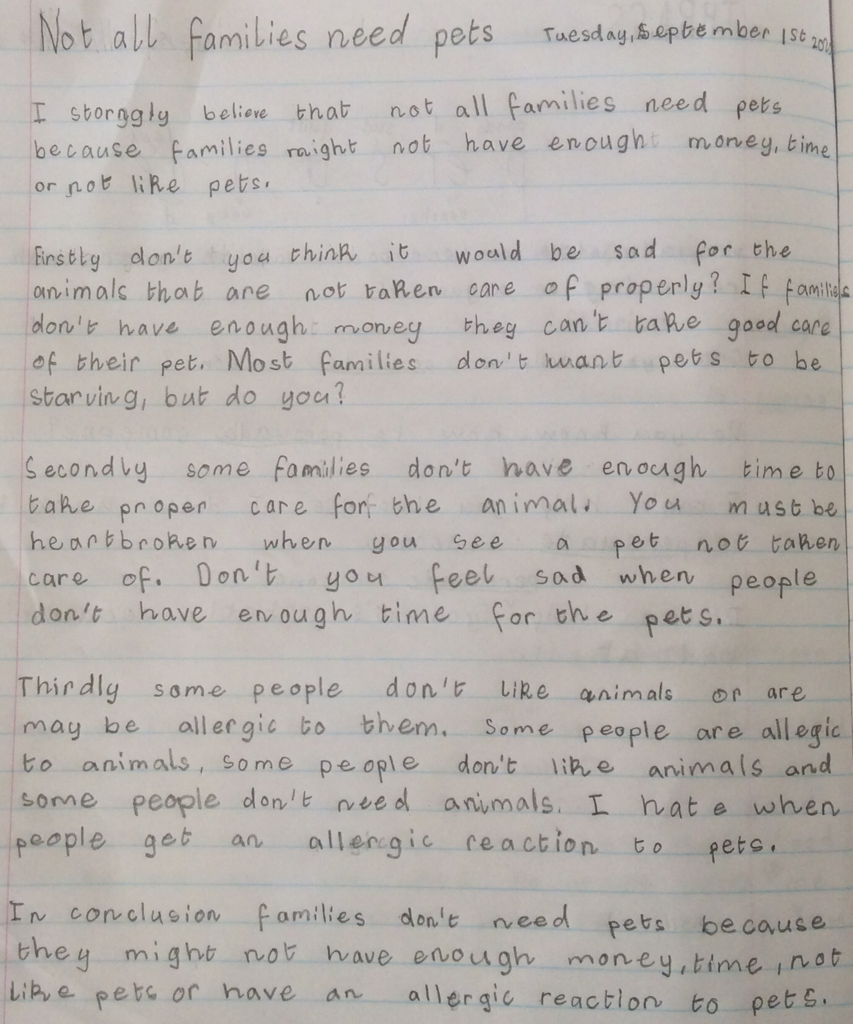 Not all families need pets Tuesday, September 1st
I storggly believe that not all families need pets
because families might not have enough money, time
or not like pets.
Firstly don't you think it would be sad for the
animals that are not taken care of properly? If families
don't have enough money they can't take good care
of their pet. Most families don't want pets to be
starving, but do you?
Secondly some families don't have enough time to
take proper care for the animal. You must be
heartbroken when you see a pet not taken
care of. Don't you feel sad when people
don't have enough time for the pets.
Thirdly some people don't like animals or are
may be allergic to them. Some people are allegic
to animals, some people don't like animals and
some people don't need animals. I hate when
people get an allergic reaction to pets.
In conclusion families don't need pets because
they might not have enough money, time, not
like pets or have an allergic reaction to pets.